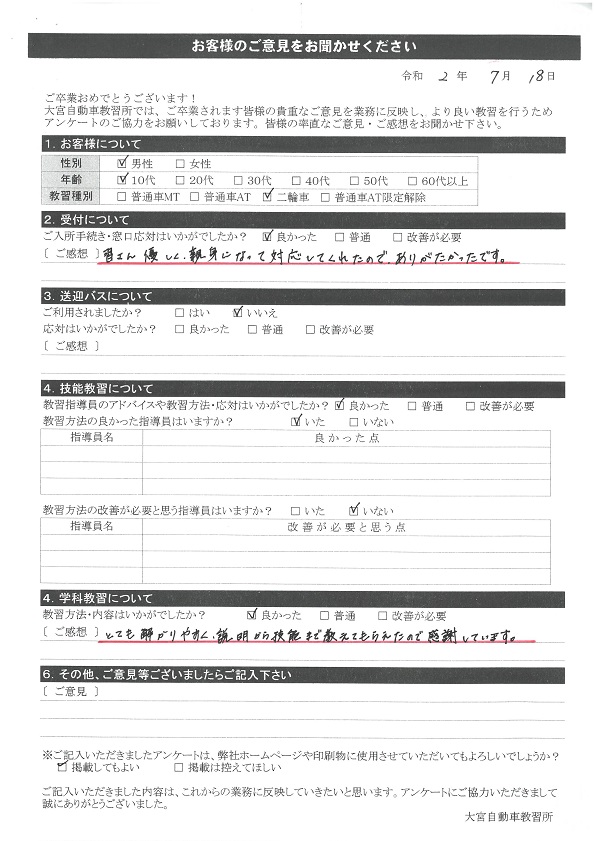 お客様のご意見をお聞かせください
令和 2 年 7 月 18 日
ご卒業おめでとうございます!
大宮自動車教習所では、ご卒業されます皆様の貴重なご意見を業務に反映し、より良い教習を行うため
アンケートのご協力をお願いしております。皆様の率直なご意見・ご感想をお聞かせ下さい。
1. お客様について
性別 ☑ 男性 □ 女性
年齢 ☑ 10代 □ 20代 □ 30代 □ 40代 □ 50代 □ 60代以上
教習種別 □ 普通車MT □ 普通車AT ☑ 二輪車 □ 普通車AT限定解除
2. 受付について
ご入所手続き・窓口応対はいかがでしたか? ☑ 良かった □ 普通 □ 改善が必要
[ ご感想 ] 皆さん優しく、親身になって対応してくれたので、ありがたかったです。
3. 送迎バスについて
ご利用されましたか? □ はい ☑ いいえ
応対はいかがでしたか? □ 良かった □ 普通 □ 改善が必要
[ ご感想 ]
4. 技能教習について
教習指導員のアドバイスや教習方法・応対はいかがでしたか? ☑ 良かった □ 普通 □ 改善が必要
教習方法の良かった指導員はいますか? ☑ いた □ いない
指導員名 良かった点
教習方法の改善が必要と思う指導員はいますか? □ いた ☑ いない
指導員名 改善が必要と思う点
4. 学科教習について
教習方法・内容はいかがでしたか? ☑ 良かった □ 普通 □ 改善が必要
[ ご感想 ] とても解がりやすく、説明から技能まで教えてもらえたので感謝しています。
6. その他、ご意見等ございましたらご記入下さい
[ ご意見 ]
※ご記入いただきましたアンケートは、弊社ホームページや印刷物に使用させていただいてもよろしいでしょうか?
☑ 掲載してもよい □ 掲載は控えてほしい
ご記入いただきました内容は、これからの業務に反映していきたいと思います。アンケートにご協力いただきまして
誠にありがとうございました。
大宮自動車教習所